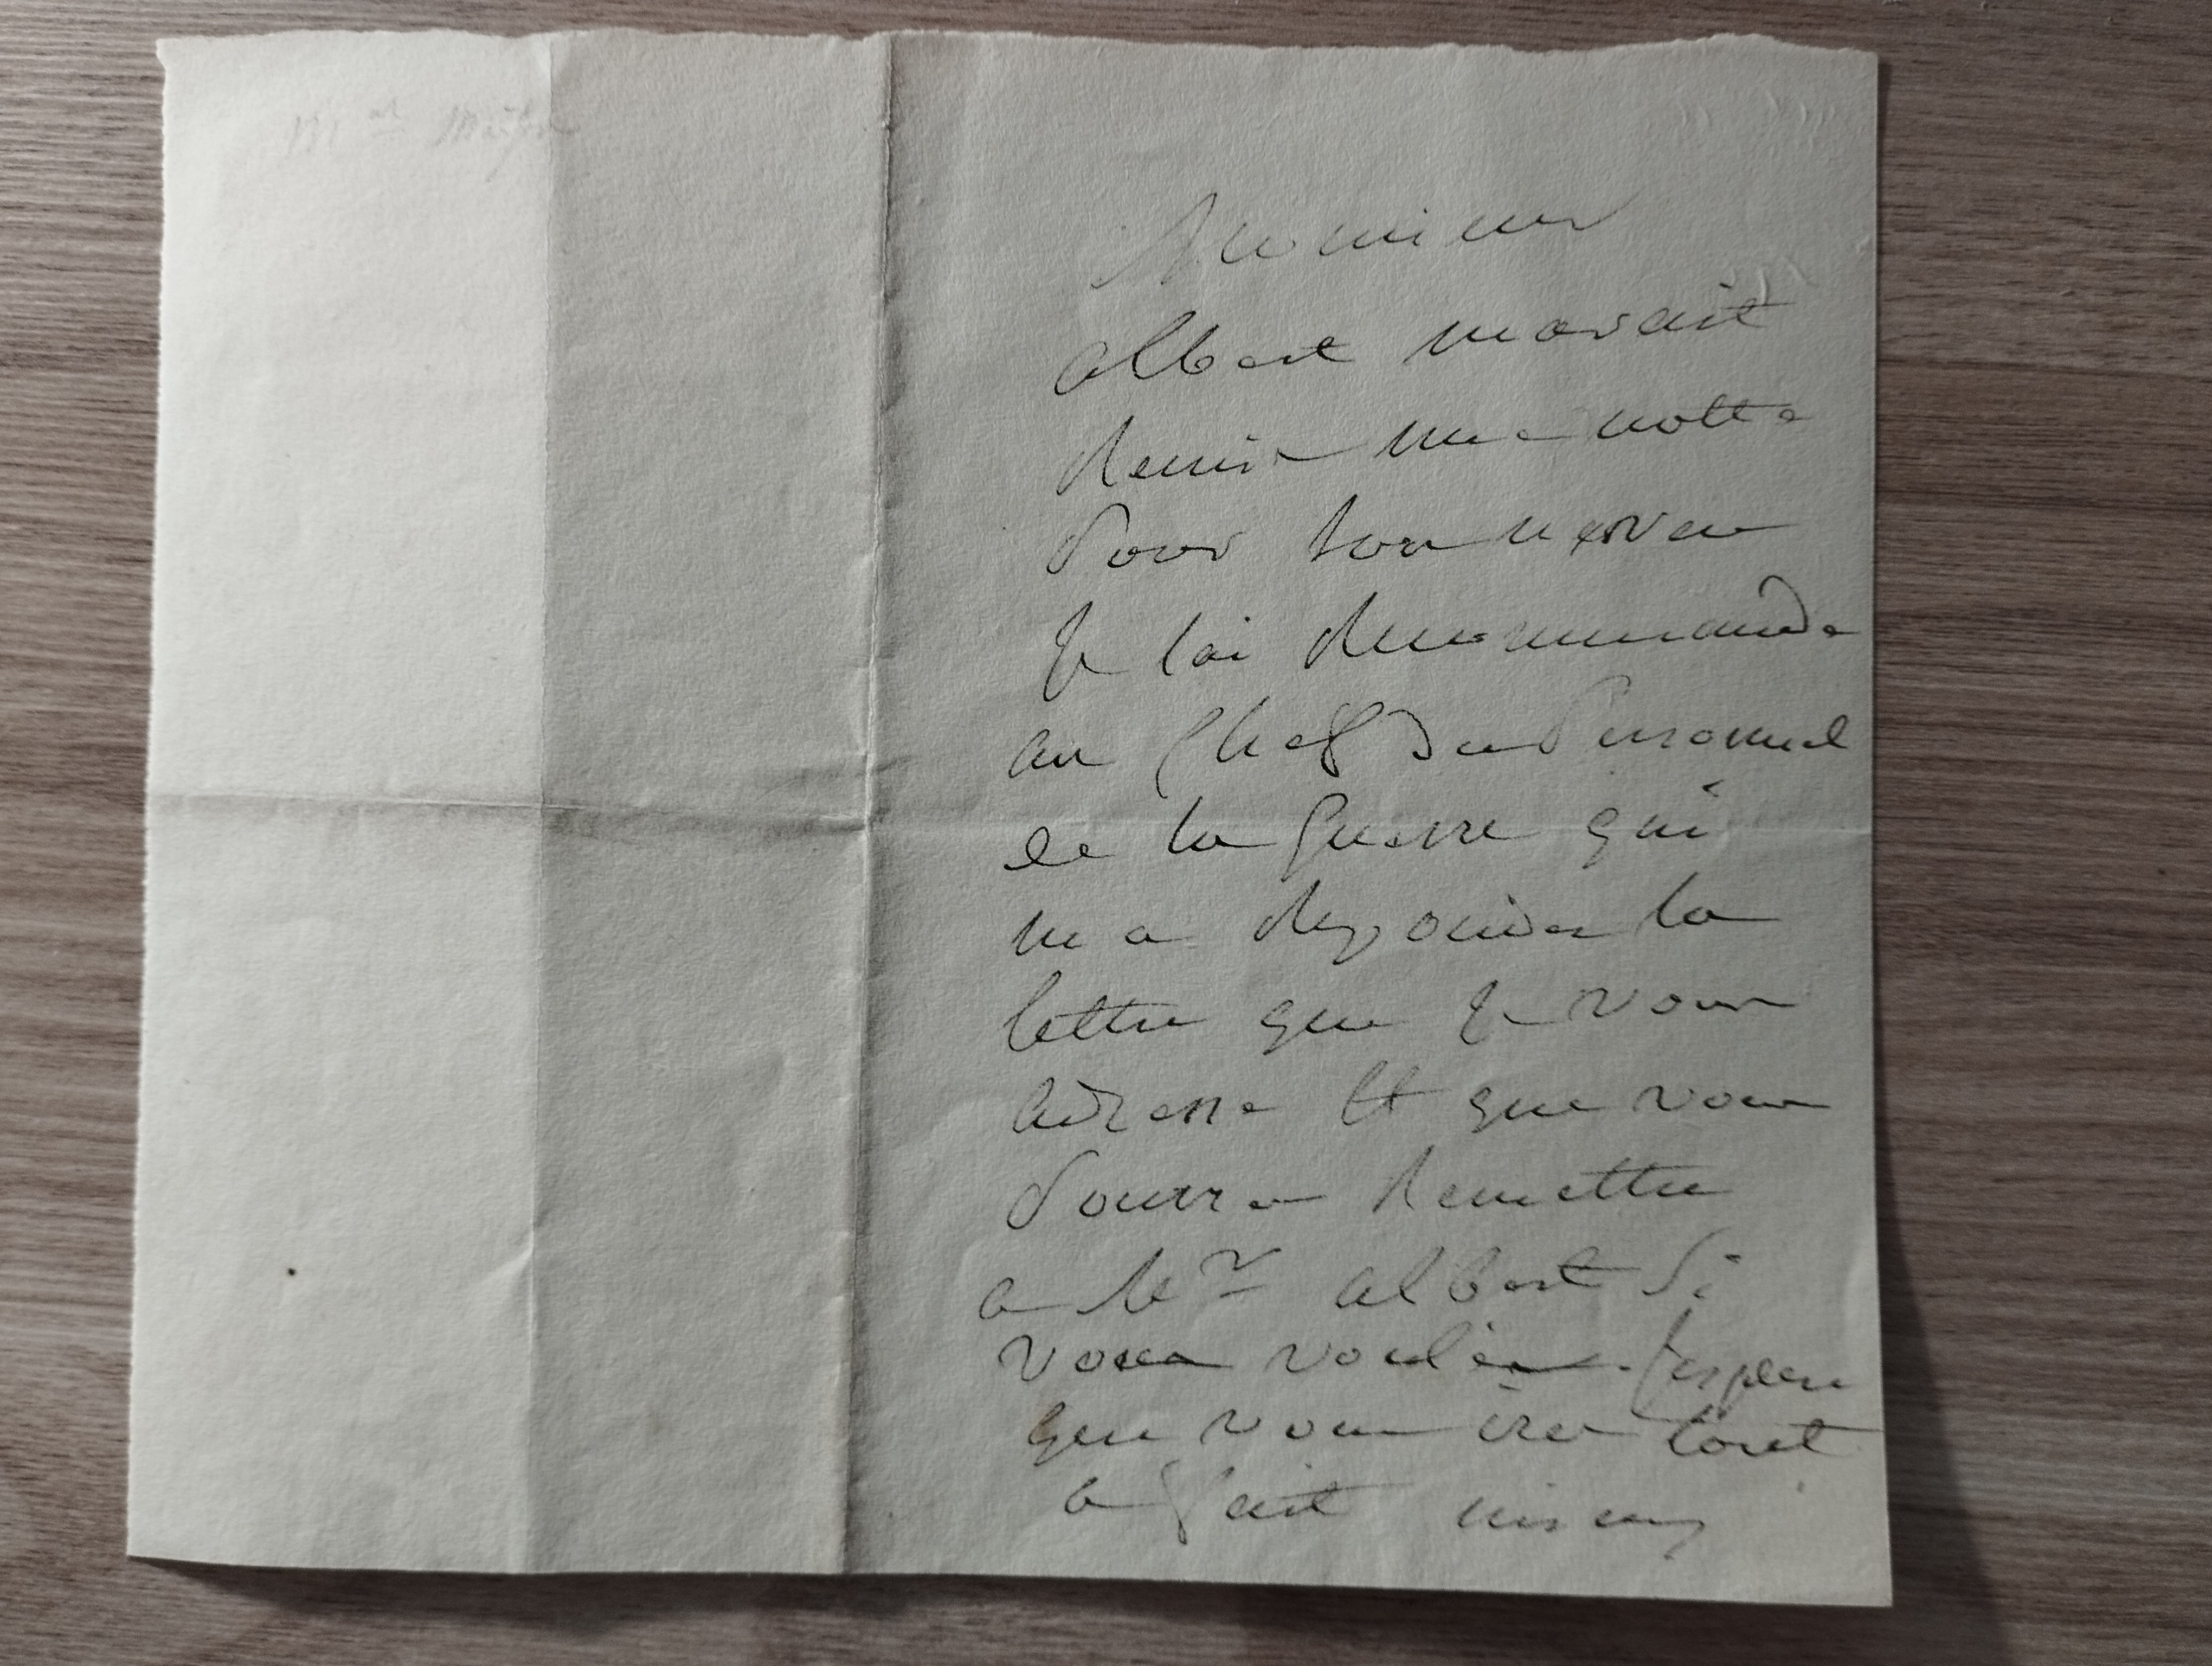 Monsieur
albert mavait
Remis une notte
Pour son neveu
Je lai Recommande
au Chef du Personnel
de la Guerre qui
ma Repondu la
lettre que Je vous
adresse Et que vous
Pourrez Remettre
a Mr albert Si
vous voulez. Jespere
que vous irez tout
a fait mieux